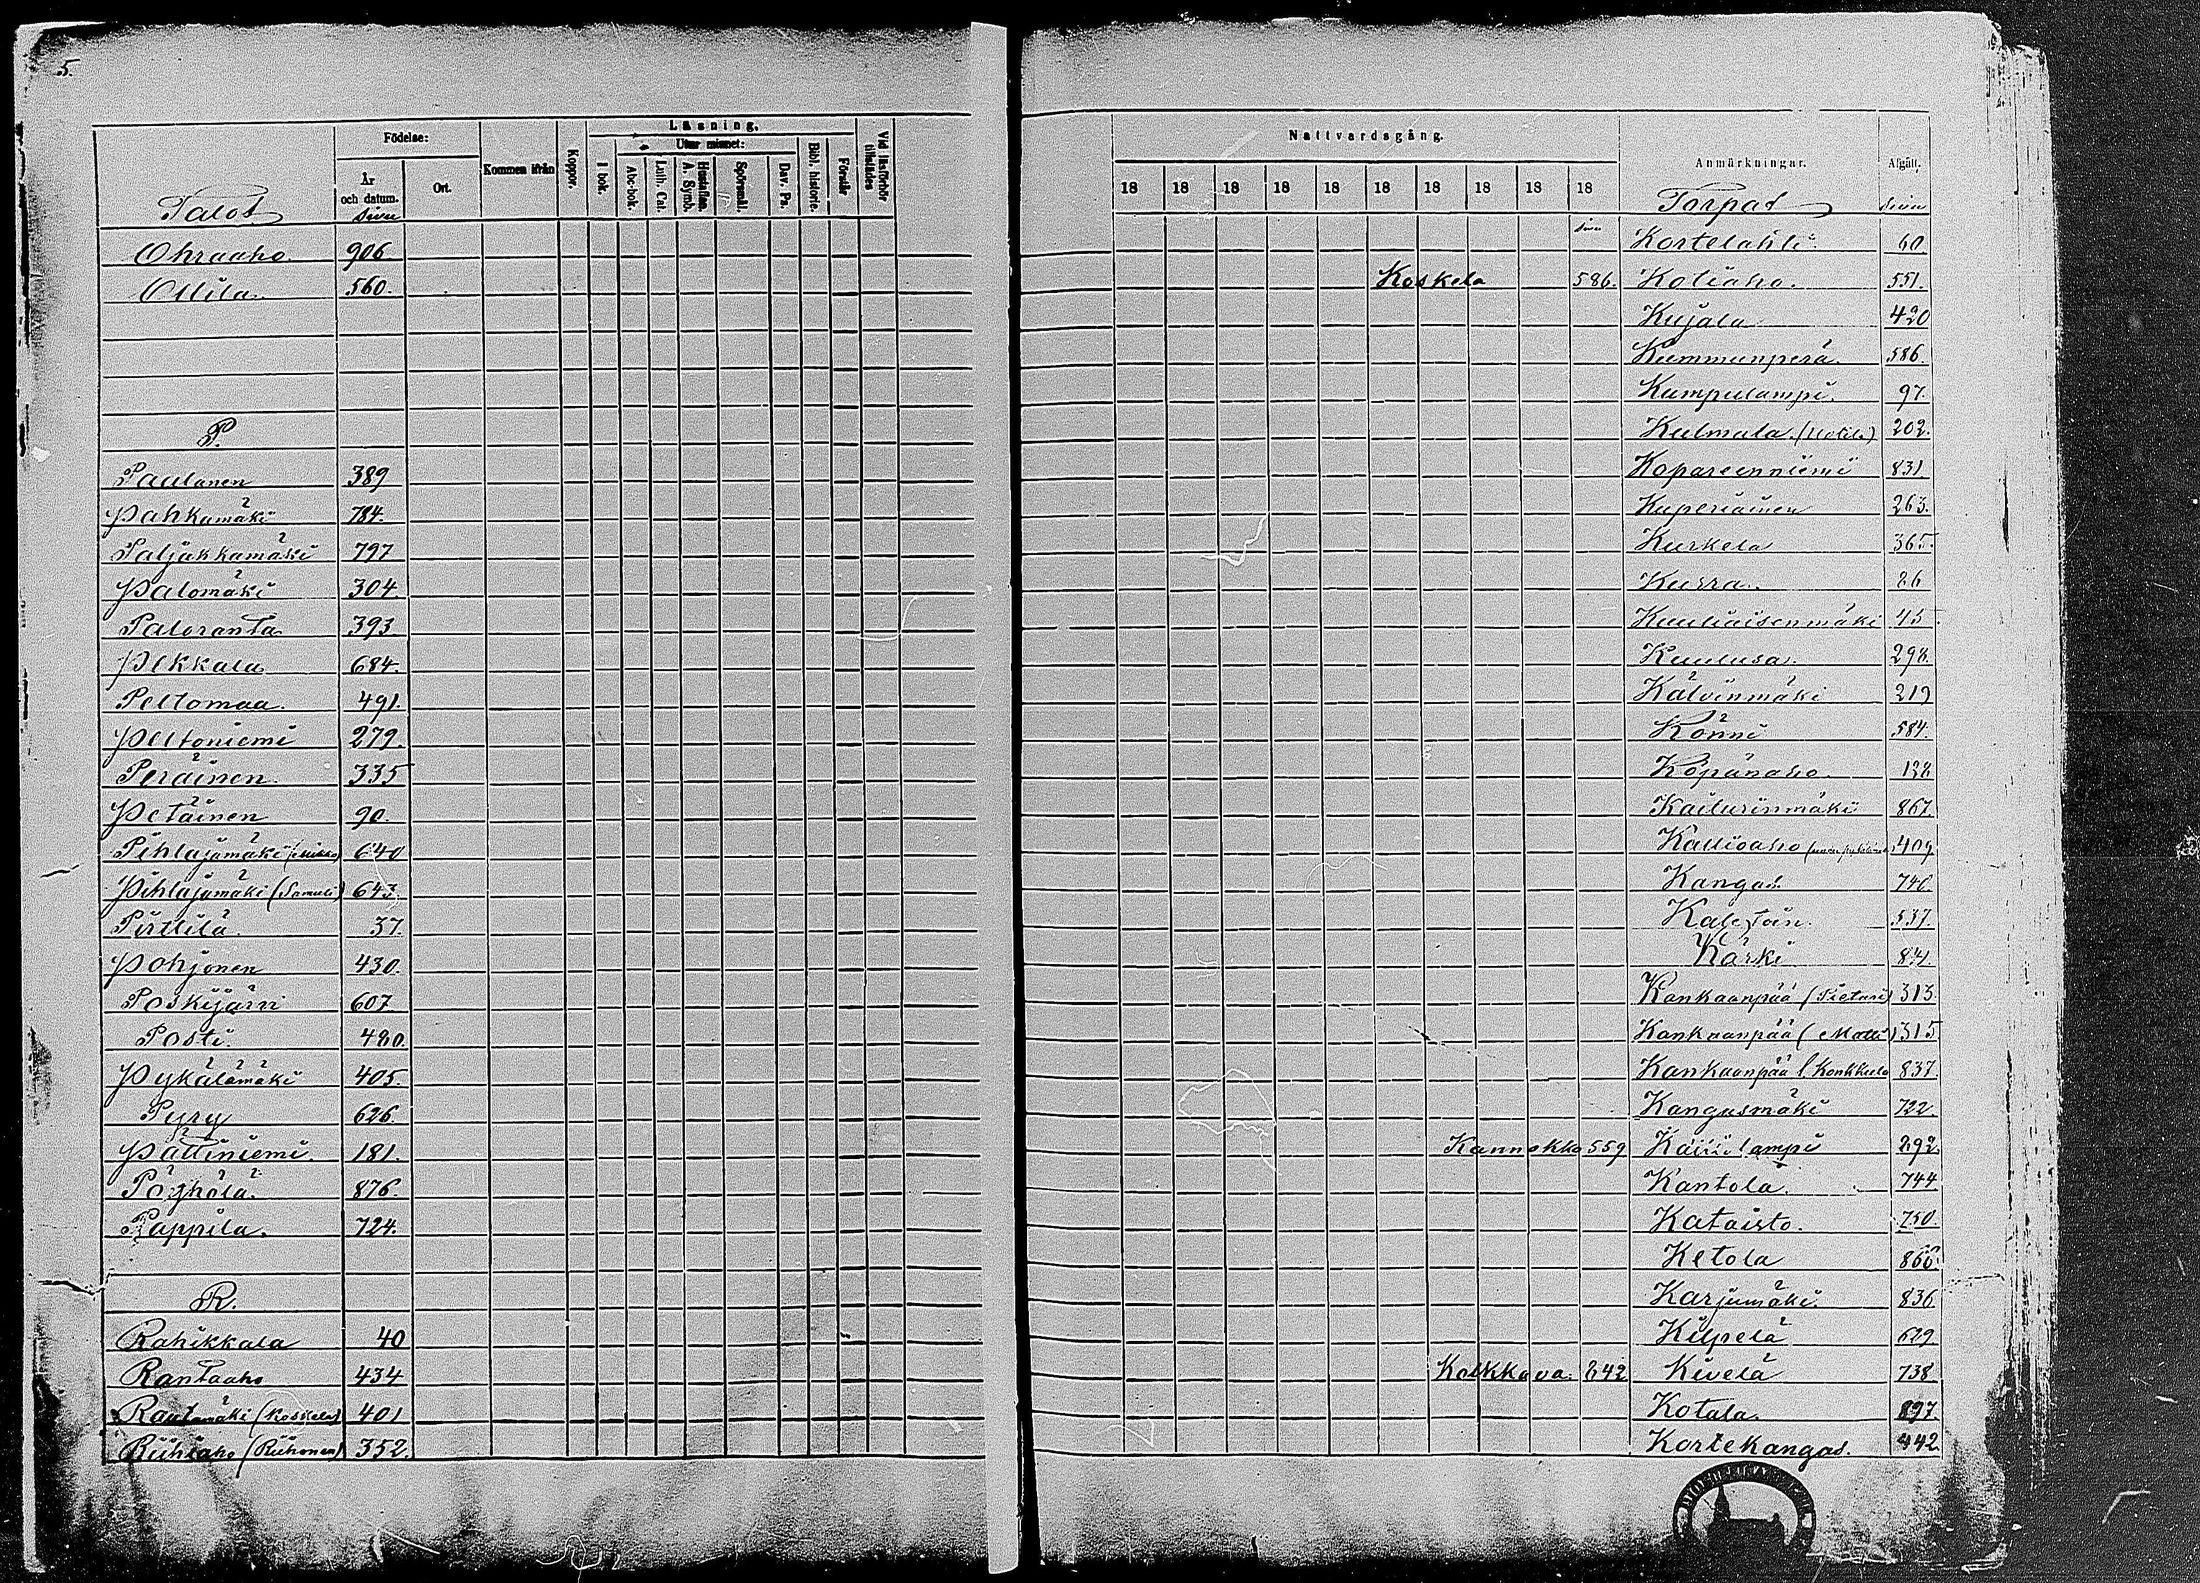 5.
Födelse:
Kommen ifrån
Koppor.
Läsning.
Utur minnet:
I bok.
Abc-bok.
Luth. Cat.
Hustaflan. A. Symb.
Spörsmål.
Dav. Ps.
Bibl. historie.
Förstår
Vid läsförhör tillstädes
År och datum.
Ort.
Talot sivu
Ohraaho 906
Ollila. 560.
P.
Paulanen 389
Pahkamäki 784.
Paljakkamäki 797
Palomäki 304.
Paloranta 393.
Pekkala 684.
Peltomaa. 491.
Peltoniemi 279.
Peräinen. 335
Petäinen 90.
Pihlajamäki (Mikko) 640
Pihlajamäki (Samuli) 643
Pirttilä. 37.
Pohjonen 430.
Poskijärvi 607.
Posti. 480.
Pykälämäki 405.
Pyry 626.
Pättiniemi. 181.
Pöyhölä. 876.
Pappila. 724.
R.
Rahikkala 40
Rantaaho 434
Rautamäki (Koskela) 401
Riihiaho (Riihonen) 352.
Nattvardsgång.
Anmärkningar.
Afgått.
18 18 18 18 18 18 18 18 18 18
Torpat sivu
sivu
Kortelahti 60.
Koskela 586. Kotiaho. 551.
Kujala 420
Kummunperä. 586.
Kumpulampi. 97.
Kulmala. (Uotila) 202.
Kopareenniemi 831.
Kuperiainen 263.
Kurkela 365.
Kurra. 26
Kuuliaisenmäki 45.
Kuulusa. 298.
Kälvinmäki 219
Könni 584.
Köpänaho. 128
Kailurinmäki 867.
Kallioaho 409
Kangas. 740.
537.
Kärki 841
Kankaanpää (Pietari) 313.
Kankaanpää (Matti) 315
Kankaanpää l. Konkkula 837.
Kangasmäki 722.
Kannokko 559 292.
Kantola. 744
Kataisto. 750.
Ketola 866.
Karjumäki. 836
Kilpelä 629
Kolkkava. 842 Kivelä 738
Kotala. 897.
Kortekangas. 442